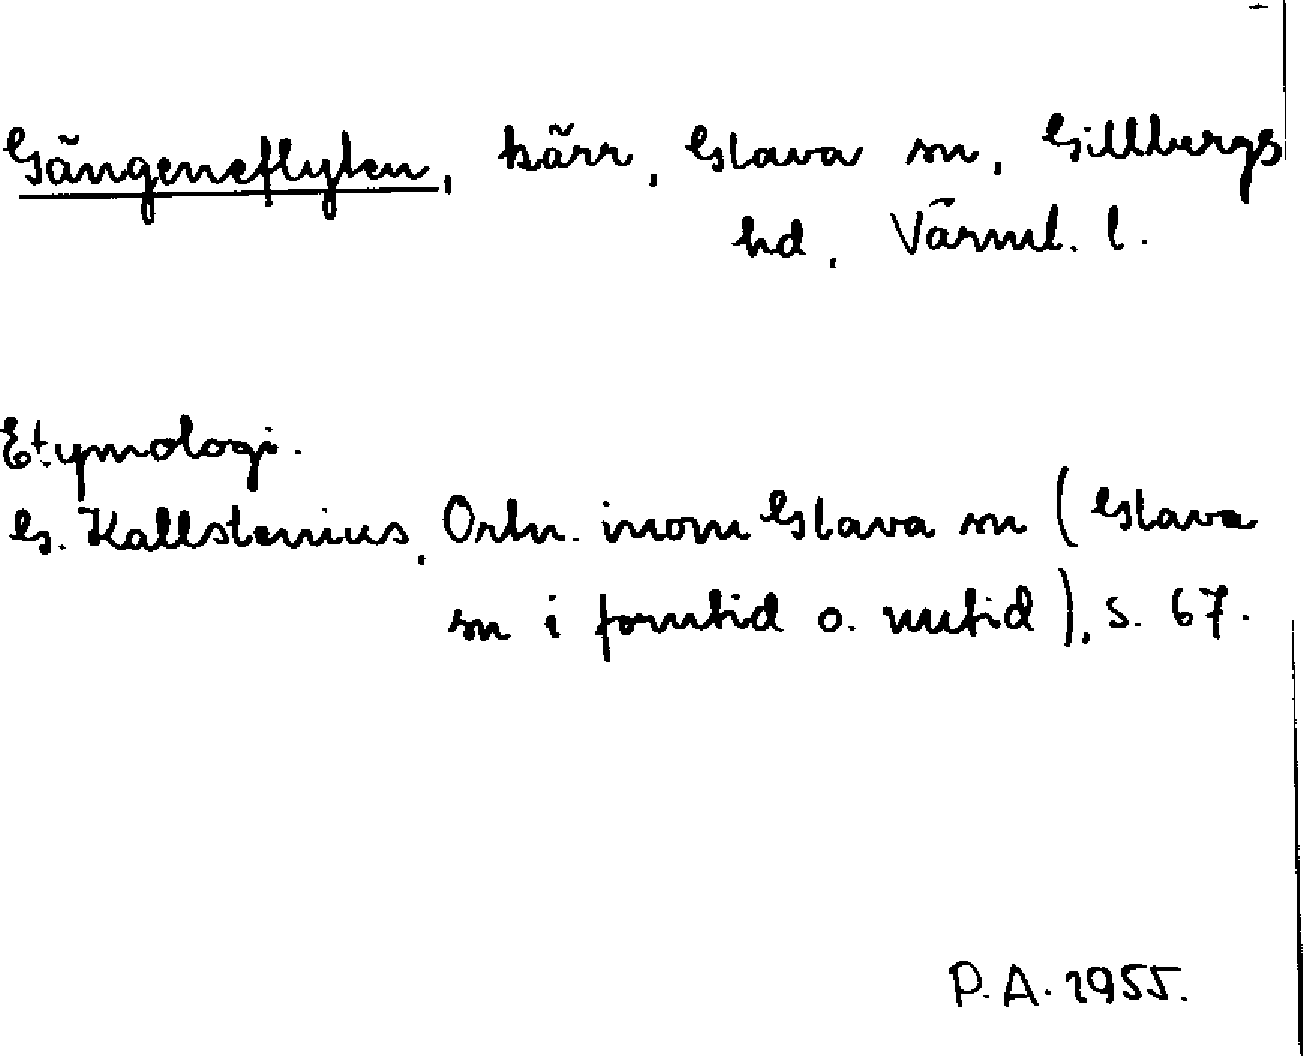 Gängeneflyten, kärr, Glava sn, Gillbergs
hd, Värml. l.
Etymologi.
G. Kallstenius, Ortn. inom Glava sn (Glava
sn i forntid o. nutid), s. 67.
P.A. 1955.